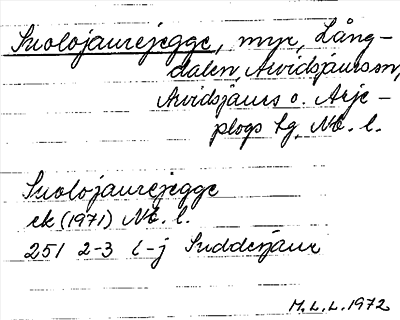 Suolojaurejegge, myr, Lång-
dalen, Arvidsjaurs sn,
Arvidsjaurs o. Arje-
plogs tg, Nb. l.
Suolojaurejegge
ek (1971) Nb. l.
25I 2-3 i-j Suddesjaur
M.L.L. 1972